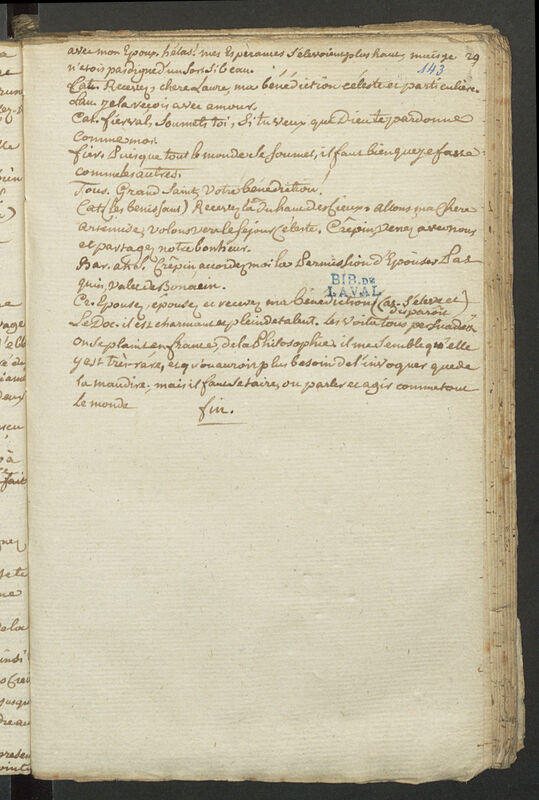 avec mon Epoux. hélas! mes Espérances S'élevoient plus haut, mais je 29
n'étois pas digne d'un Sort Si beau. 143
Cat. Recevez, chere Laure, ma bénédiction céleste et particulière.
Lau. je la reçois avec amour.
Cat. fierval, Soumets toi, Si tu veux que Dieu te pardonne
comme moi.
fier. Puisque tout le monde Se Soumet, il faut bien que je fasse
comme les autres.
Tous. Grand Saint, votre bénédiction.
Cat. (les bénissant) Recevez la Du haut des Cieux. allons ma chere
artemide, volons vers le Séjour Céleste. Crêpin, venez avec nous
et partagez notre bonheur.
Bar. Crêpin accordez moi la Permission d'Epouser Pas
quin, Valet de
Cr. Epouse, épouse, et recevez ma bénédiction (Cat. S'éleve et
disparoit)
Le Doc. il est charmant et plein de talent. Les voilà tous persuadés.
On Se plaint en france, de la Philosophie. il me Semble qu'elle
y est très rare, et qu'on auroit plus besoin de l'invoquer que de
la maudire, mais il faut Se taire, ou parler et agir comme tout
Le monde fin.
BIB. DE
LAVAL